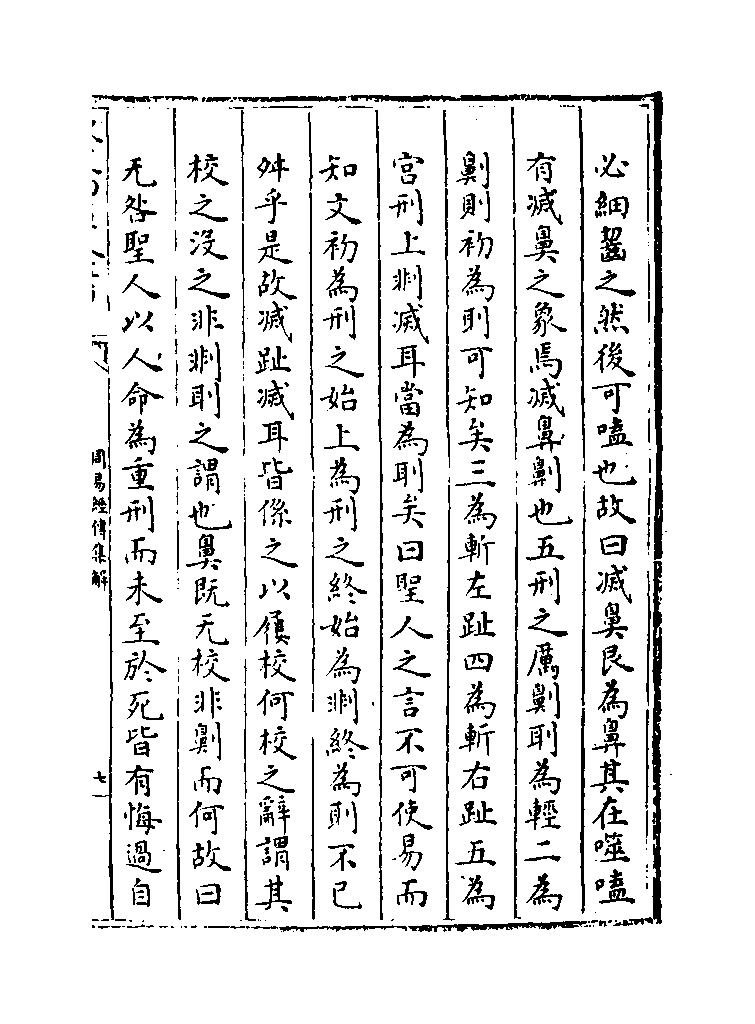 必細齧之然後可嗑也故曰滅鼻艮為鼻其在噬嗑
有滅鼻之象焉滅鼻劓也五刑之厲劓刵為輕二為
劓則初為刵可知矣三為斬左趾四為斬右趾五為
宫刑上剕滅耳當為刵矣曰聖人之言不可使易而
知文初為刑之始上為刑之終始為剕終為則不已
舛乎是故滅趾滅耳皆係之以屨校何校之辭謂其
校之没之非剕刵之謂也鼻既无校非劓而何故曰
无咎聖人以人命為重刑而未至於死皆有悔過自
周易經傳集解